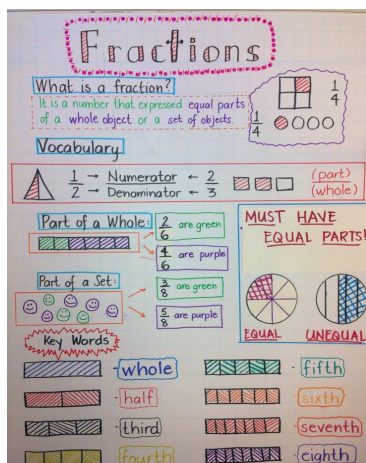 Fractions
What is a fraction?
It is a number that expressed equal parts
of a whole object or a set of objects.
1
4
1
4
Vocabulary
1 → Numerator ← 2 (part)
2 → Denominator ← 3 (whole)
Part of a Whole:
2
6 are green
4
6 are purple
Part of a Set:
3
8 are green
5
8 are purple
MUST HAVE
EQUAL PARTS!
EQUAL UNEQUAL
Key Words
whole
half
third
fourth
fifth
sixth
seventh
eighth